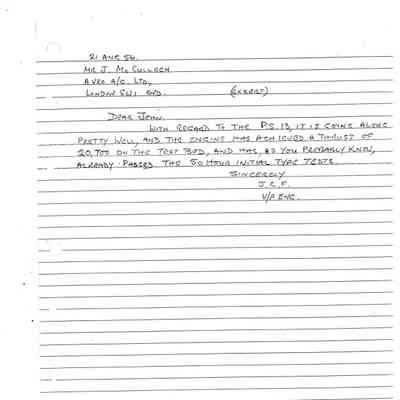 21 AUG 56.
MR J. McCULLOCH
AVRO A/C. LTD,
LONDON SW1 END. (EXSERT)
DEAR JOHN.
WITH REGARD TO THE P.S.13, IT IS COING ALONG
PRETTY WELL, AND THE ENGINE HAS ACHIEVED A THRUST OF
20,700 ON THE TEST BED, AND HAS, AS YOU PROBABLY KNOW,
ALREADY PASSED THE 50 HOUR INITIAL TYPE TESTS.
SINCERELY
J.C.F.
V/P ENG.